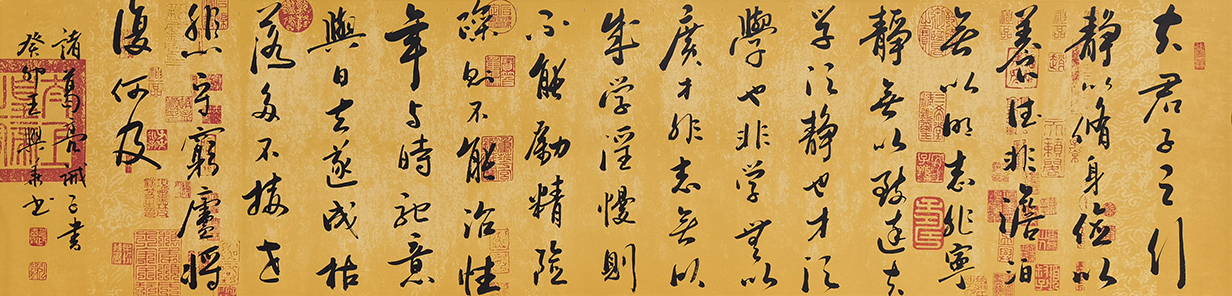 夫君子之行
静以脩身儉以
養德非澹泊
無以明志非寧
靜無以致遠夫
学須静也才須
學也非学無以
廣才非志無以
成学淫慢則
不能勵精險
躁則不能冶性
年与時馳意
與日去遂成枯
落多不接世
悲守窮廬將
復何及
諸葛亮誡子書
癸卯興華书